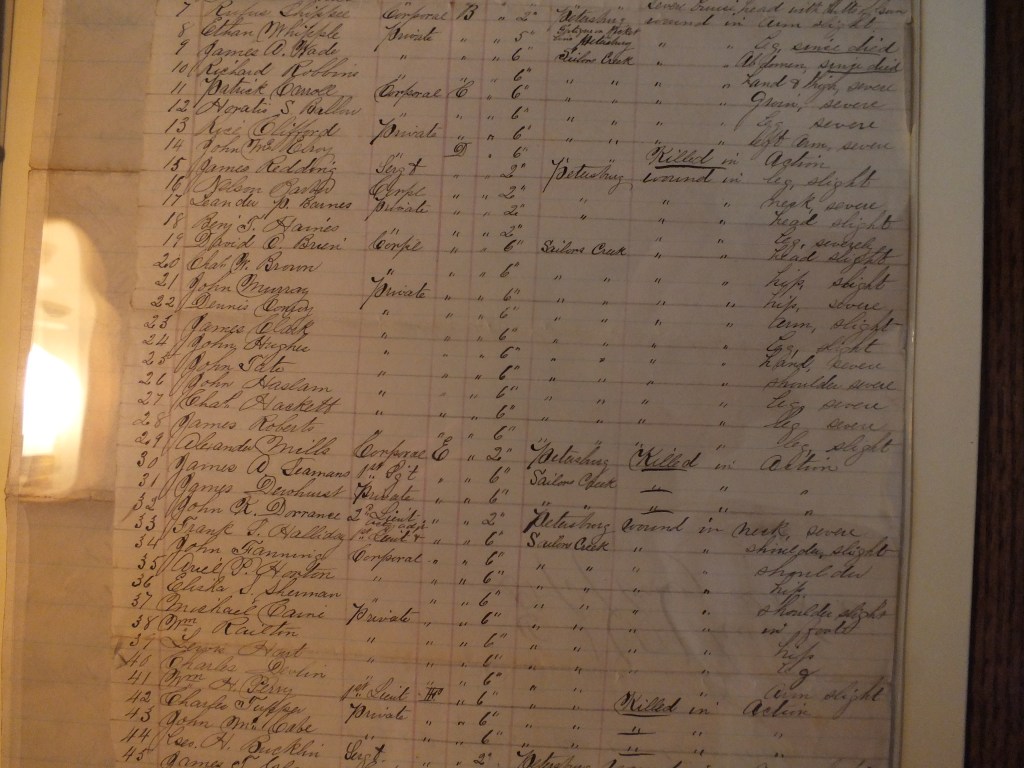 7 Rufus Corporal B " 2" Petersburg wound in arm slight
8 Ethan Whipple Private " " 5" Petersburg " " Leg, since died
9 James A. Wade " " " 6" Sailors Creek " " Abdomen, since died
10 Richard Robbins " " " 6" " " " " hand & thigh, severe
11 Patrick Carroll Corporal C " 6" " " " " Groin, severe
12 Horatio S. Ballou " " " 6" " " " " Leg severe
13 Clifford Private " " 6" " " " " left arm, severe
14 John Mc Elroy " D " 6" " " Killed in Action
15 James Redding Sergt " " 2" Petersburg wound in leg, slight
16 Nelson Corpl " " 2" " " " neck severe
17 Leander P. Barnes Private " " 2" " " " head slight
18 Benj. S. Haines " " " 2" " " " Leg, severely
19 David O. Brien Corpl " " 6" Sailors Creek " " head slight
20 Chas. W. Brown " " " 6" " " " " hip, slight
21 John Murray Private " " 6" " " " " hip, severe
22 Dennis " " " 6" " " " " arm, slight
23 James Clark " " " 6" " " " " Leg, slight
24 John Hughes " " " 6" " " " " hand, severe
25 John Tate " " " 6" " " " " shoulder severe
26 John Haslam " " " 6" " " " " leg severe
27 Chas. Haskett " " " 6" " " " " leg, severe
28 James Roberts " " " 6" " " " " leg, slight
29 Alexander Mills Corporal E " 2" Petersburg Killed in Action
30 James A. Seamans 1st Sgt " " 6" Sailors Creek " " "
31 James Dewhurst Private " " 6" " " " " "
32 John K. Dorrance 2nd Lieut " " 2" Petersburg wound in neck, severe
33 Frank S. Halliday 1st Lieut & " " 6" Sailors Creek " " shoulder, slight
34 John Fanning Corporal " " 6" " " " " shoulder
35 Ariel P. Horton " " " 6" " " " " hip
36 Elisha S. Sherman " " " 6" " " " " shoulder slight
37 Michael Caine Private " " 6" " " " " in foot
38 Wm Railton " " " 6" " " " " hip
39 Lewis Hart " " " 6" " " " " leg
40 Charles Devlin " " " 6" " " " " arm slight
41 Wm H. Perry 1st Lieut " 6" " " Killed in Action
42 Charles Tupper Private " " 6" " " " " "
43 John McCabe " " " 6" " " " " "
44 Geo. H. Bucklin Sergt " " 2" Petersburg
45 James